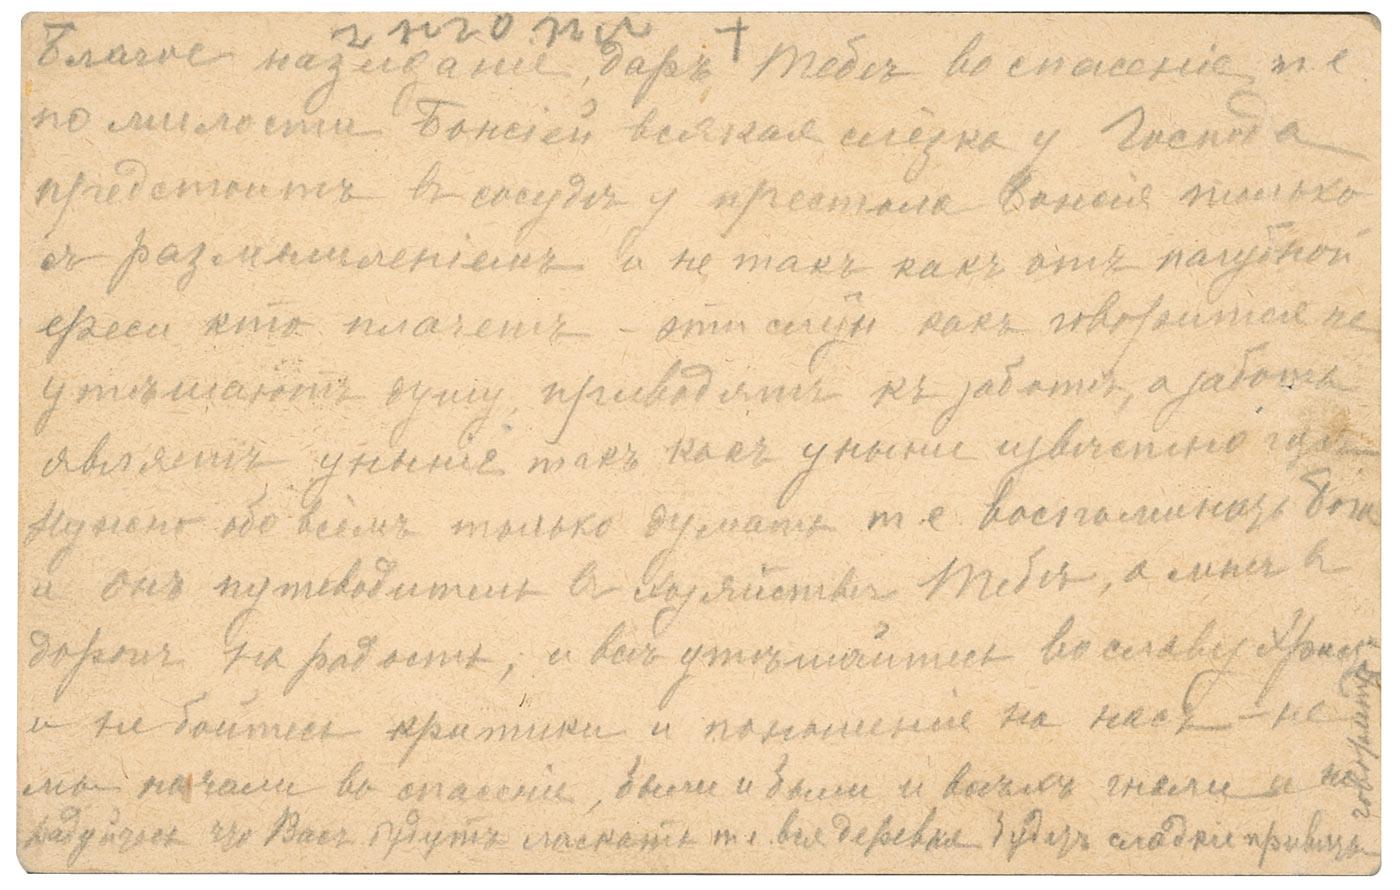 Благое назидание, даръ Тебѣ во спасение, т е
по милости Божіей всякая слёзка у Господа
предстоитъ в сосудѣ у престола Божия только
съ размышленіемъ и не такъ какъ отъ пагубной
ереси кто плачетъ – эти какъ говорится не
утѣшаютъ душу, приводятъ къ заботѣ, а забота
являетъ уныніе такъ какъ уныни извѣстно
Нужно обо всёмъ только думать т.е. воспоминать Бога
и онъ путеводитель в хозяйстве Тебѣ, а мне в
дороге на радость, и всѣ утѣшайтесь во славу Христа
и не бойтесь критики и поношение на насъ – не
мы начали во спасение, были и были и всѣхъ гнали и не
радуйтесь что Васъ будутъ ласкать т.е. вся деревня будетъ сладки
говорить